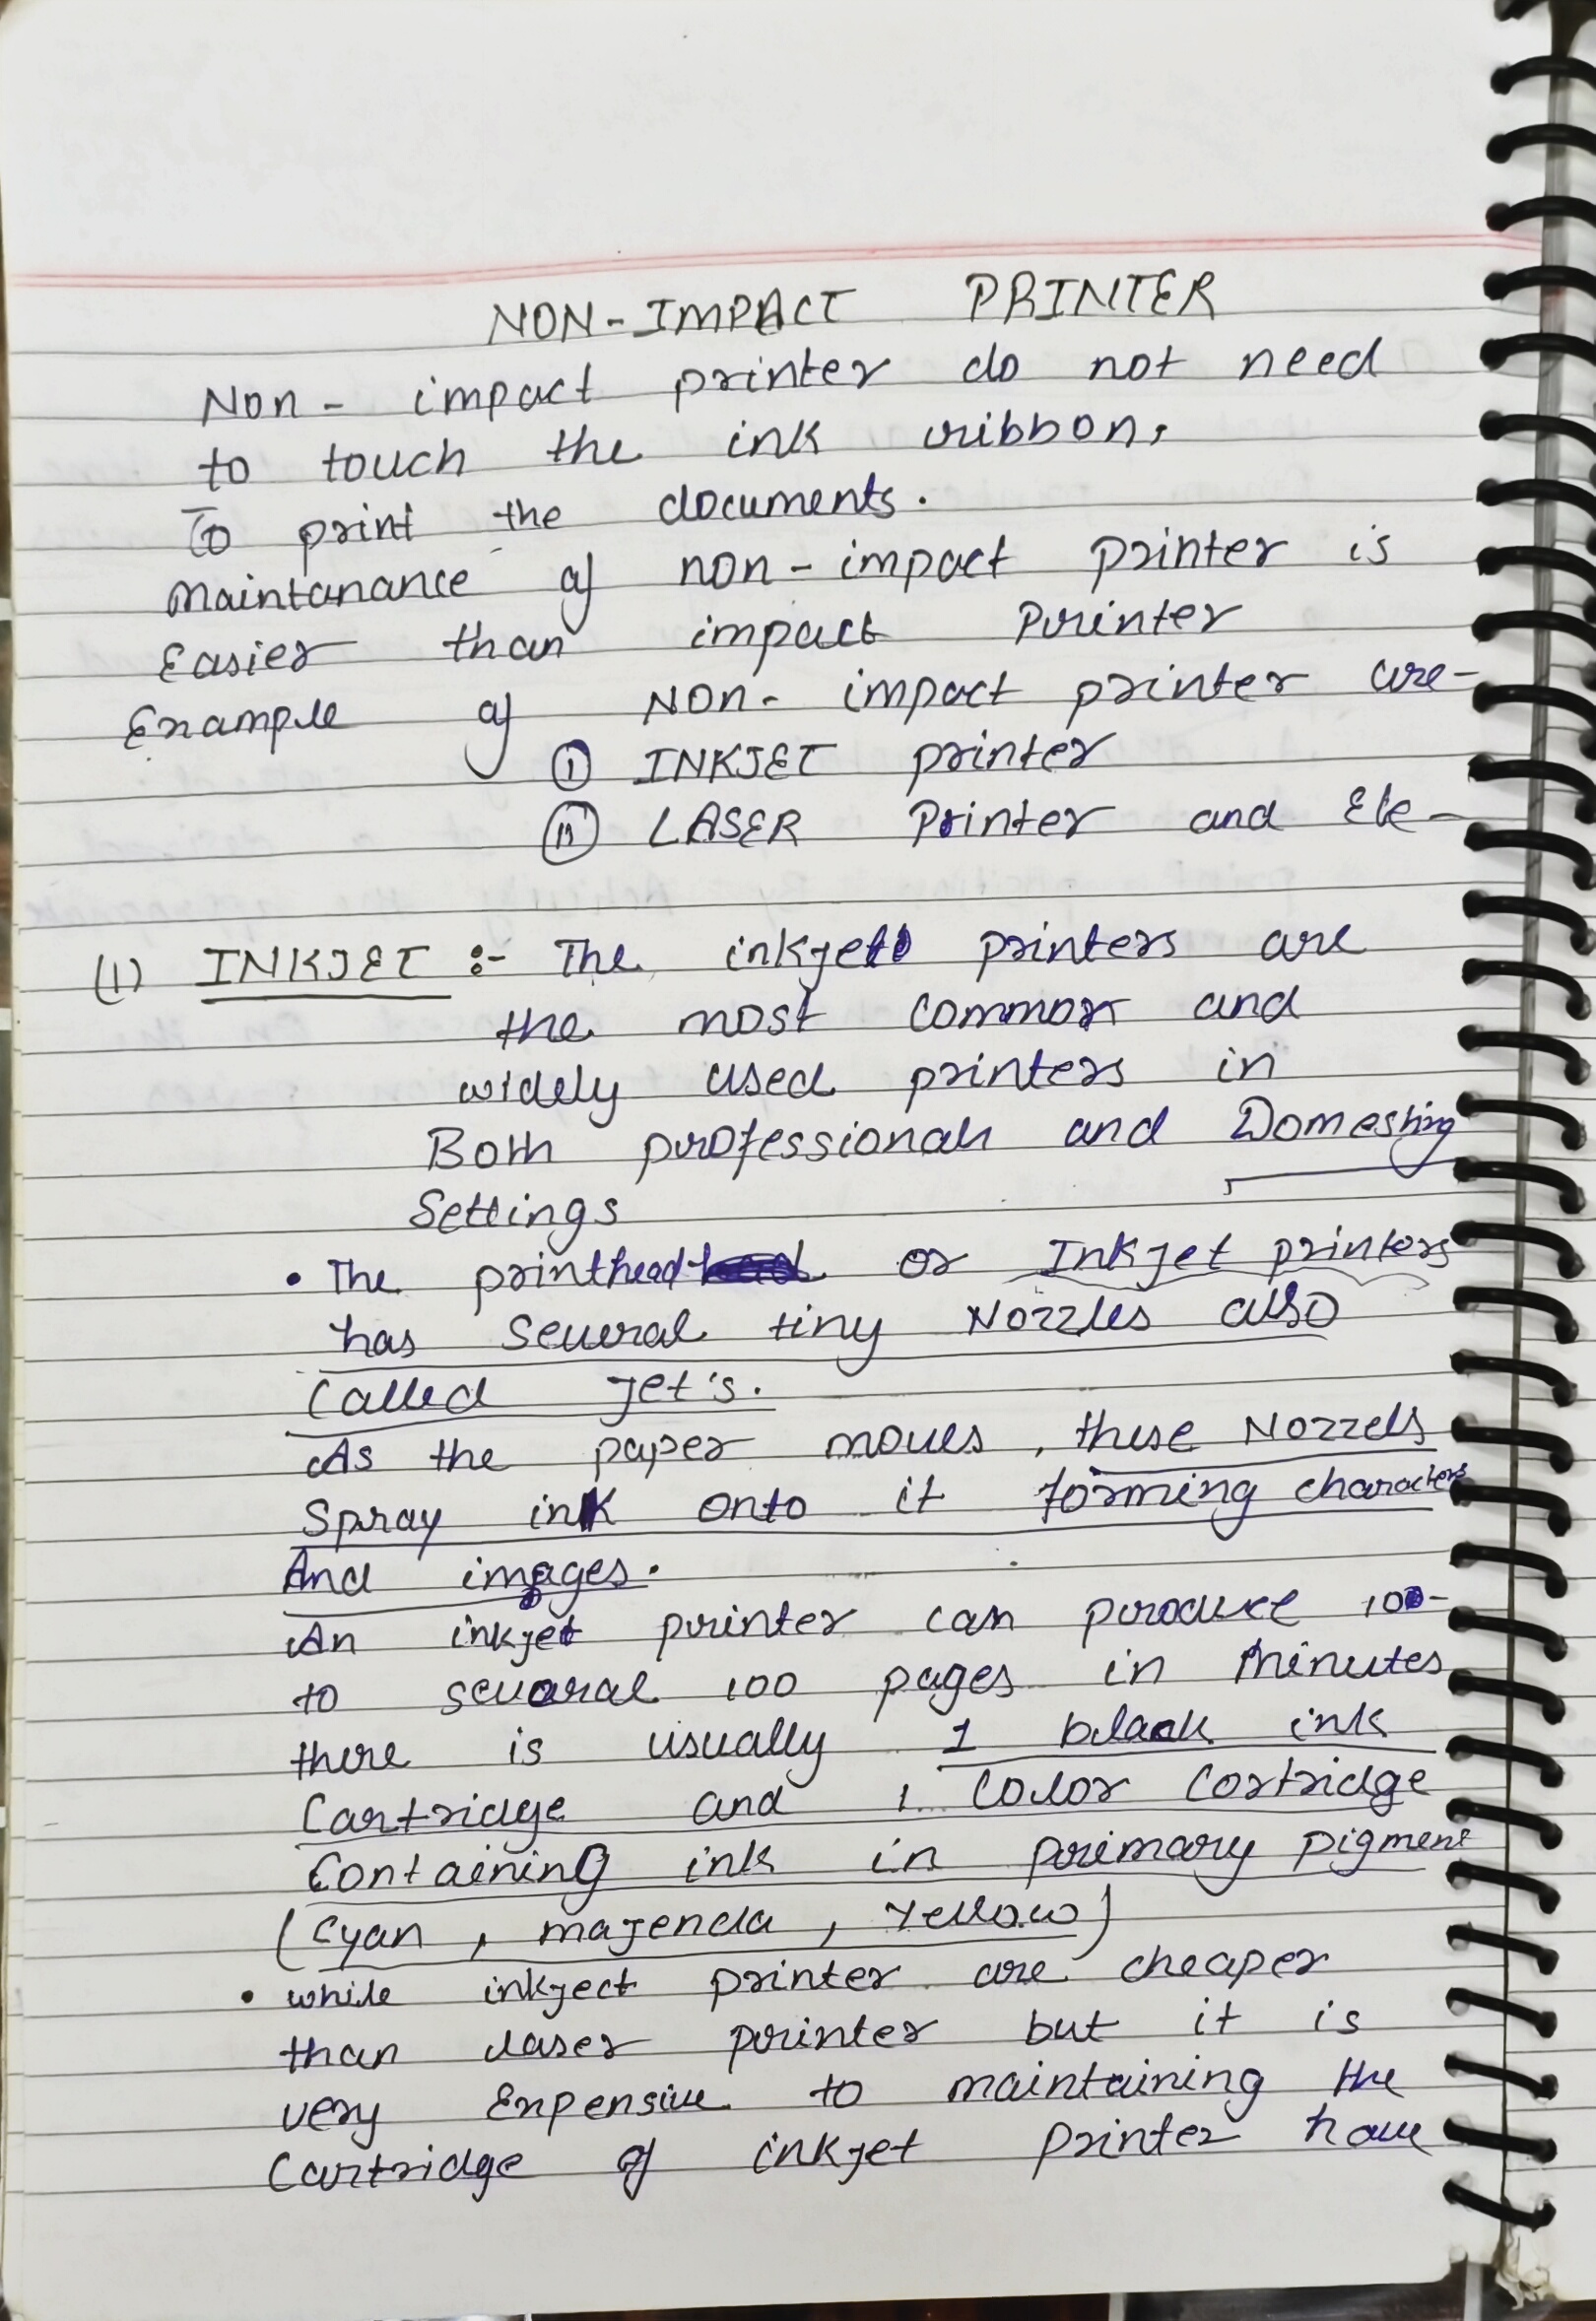 NON-IMPACT PRINTER
Non- impact printer do not need
to touch the ink ribbon,
To print the documents.
Maintanance of non-impact printer is
Easier than impact Printer
Example of NON- impact printer are-
(i) INKJET printer
(ii) LASER Printer and Ete-
(1) INKJET :- The inkjet printers are
the most common and
widely used printers in
Both professionals and Domesting
Settings
• The printhead or Inkjet printers
has several tiny Nozzles also
Called Jet's.
As the paper moves, these Nozzels
Spray ink onto it forming characters
And images.
An inkjet printer can produce 100-
to sevaral 100 pages in Minutes
there is usually 1 black ink
Cartridge and 1 Color Cortridge
Containing ink in primary pigment
(Cyan, majenda, Yellow)
• while inkject printer are cheaper
than laser printer but it is
very Expensive to maintaining the
Cartridge of inkjet printer have